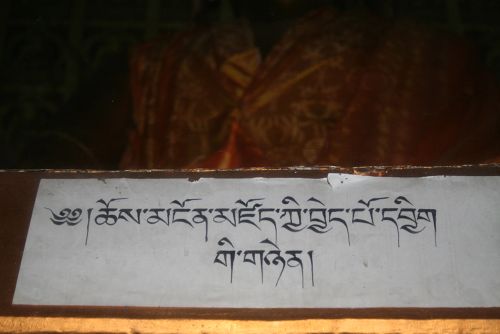 ༄༅། །ཆོས་མངོན་མཛོད་ཀྱི་བྱེད་པོ་དབྱིག
གི་གཉེན།